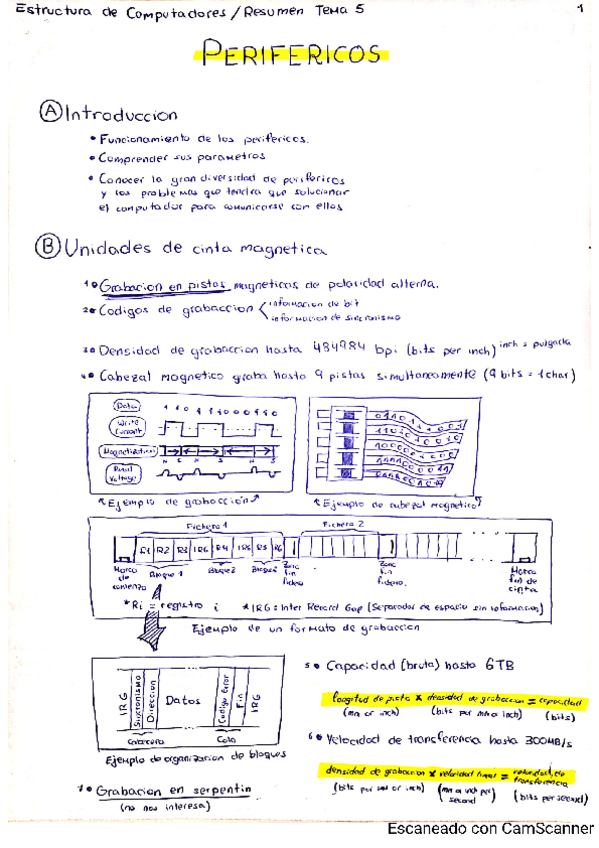 Estructura de Computadores / Resumen Tema 5
1
PERIFERICOS
A Introduccion
• Funcionamiento de los perifericos.
• Comprender sus parametros
• Conocer la gran diversidad de perifericos
y los problemas que tendra que solucionar
el computador para comunicarse con ellos
B Unidades de cinta magnetica
1• Grabacion en pistas magneticas de polaridad alterna.
2• Codigos de grabaccion
informacion de bit
informacion de sincronismo
3• Densidad de grabaccion hasta 484984 bpi (bits per inch) inch = pulgada
4• Cabezal magnetico graba hasta 9 pistas simultaneamente (9 bits = 1 char)
Data
Write Current
Magnetization
Read Voltage
Ejemplo de grabacción
Ejemplo de cabezal magnetico
Fichero 1
Fichero 2
R1 R2 R3 IRG R4 IRG R5 R6
Marca de comienzo
Bloque 1
Bloque2
Zona fin fichero
Zona fin fichero
Marca fin de cinta
*Ri = registro i
*IRG: Inter Record Gap (Separador de espacio sin informacion)
Ejemplo de un formato de grabaccion
IRG
Sincronismo
Direccion
Datos
Codigo Error
Fin
IRG
Cabecera
Cola
Ejemplo de organizacion de bloques
5• Capacidad (bruta) hasta 6TB
longitud de pista x densidad de grabaccion = capacidad
(mm or inch) (bits per mm or inch) (bits)
6• Velocidad de transferencia hasta 300MB/s
densidad de grabaccion x velocidad lineal = velocidad de transferencia
(bits per mm or inch) (mm or inch per second) (bits per second)
7• Grabacion en serpentin
(no nos interesa)
Escaneado con CamScanner